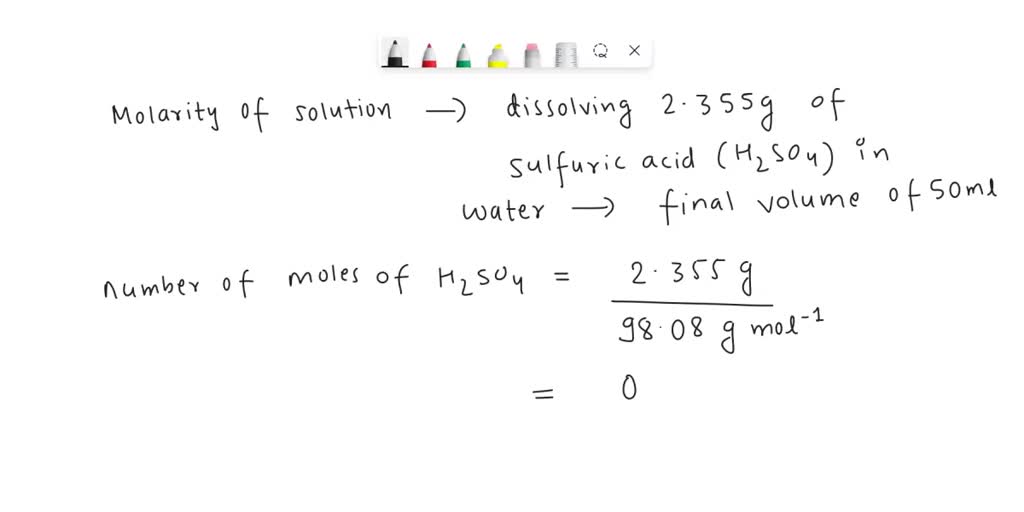 Molarity of solution → dissolving 2.355g of
sulfuric acid (H₂SO₄) in
water → final volume of 50ml
number of moles of H₂SO₄ = 2.355 g
98.08 g mol⁻¹
= 0